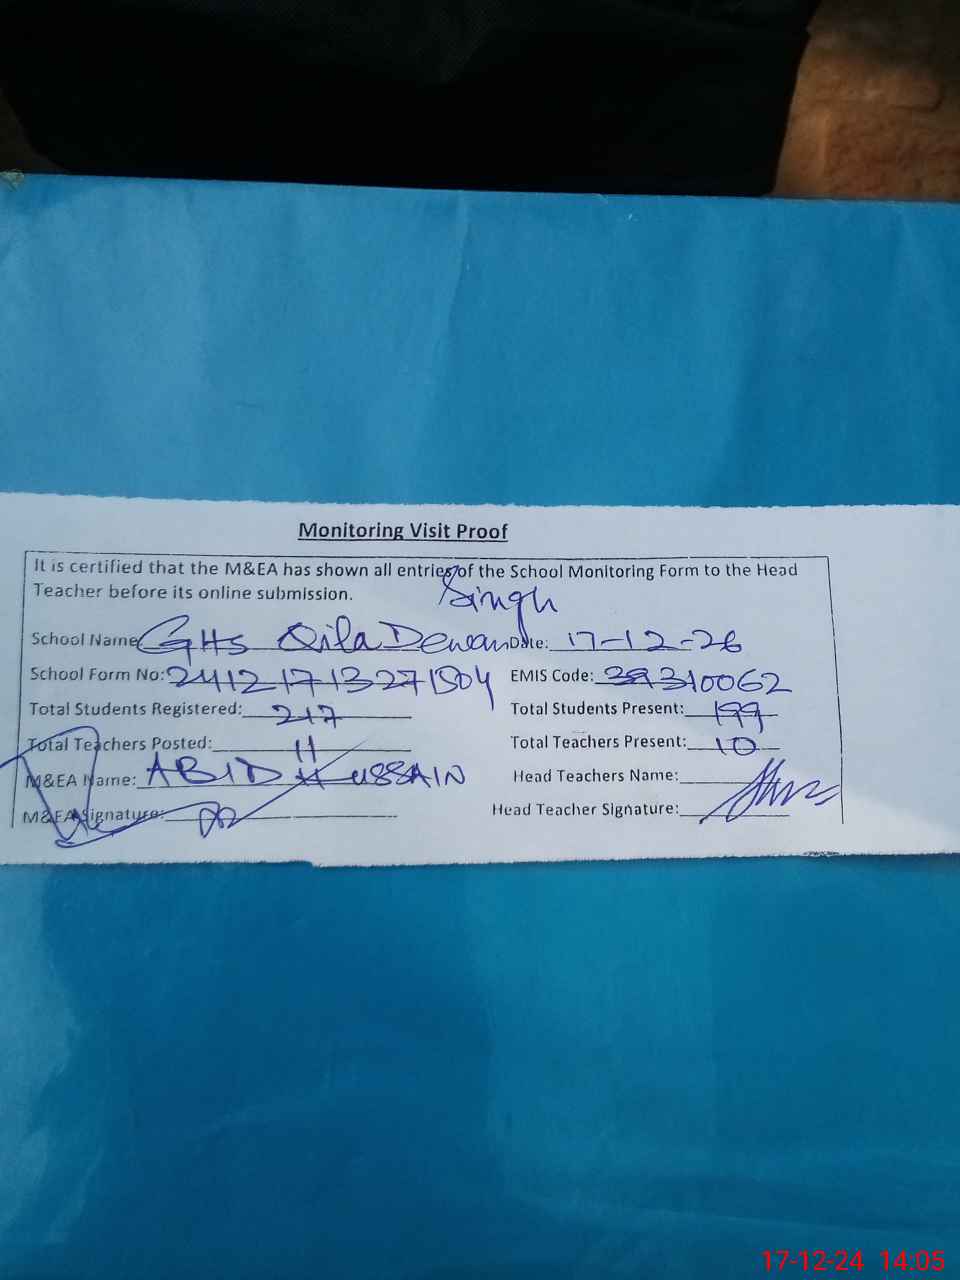 Monitoring Visit Proof
It is certified that the M&EA has shown all entries of the School Monitoring Form to the Head
Teacher before its online submission.
Singh
School Name GHS Qila Dewan Date: 17-12-26
School Form No: 2412171327 EMIS Code: 39310062
Total Students Registered: 217 Total Students Present: 199
Total Teachers Posted: 11 Total Teachers Present: 10
M&EA Name: ABID HUSSAIN Head Teachers Name:
M&EA Signature: Head Teacher Signature:
17-12-24 14:05